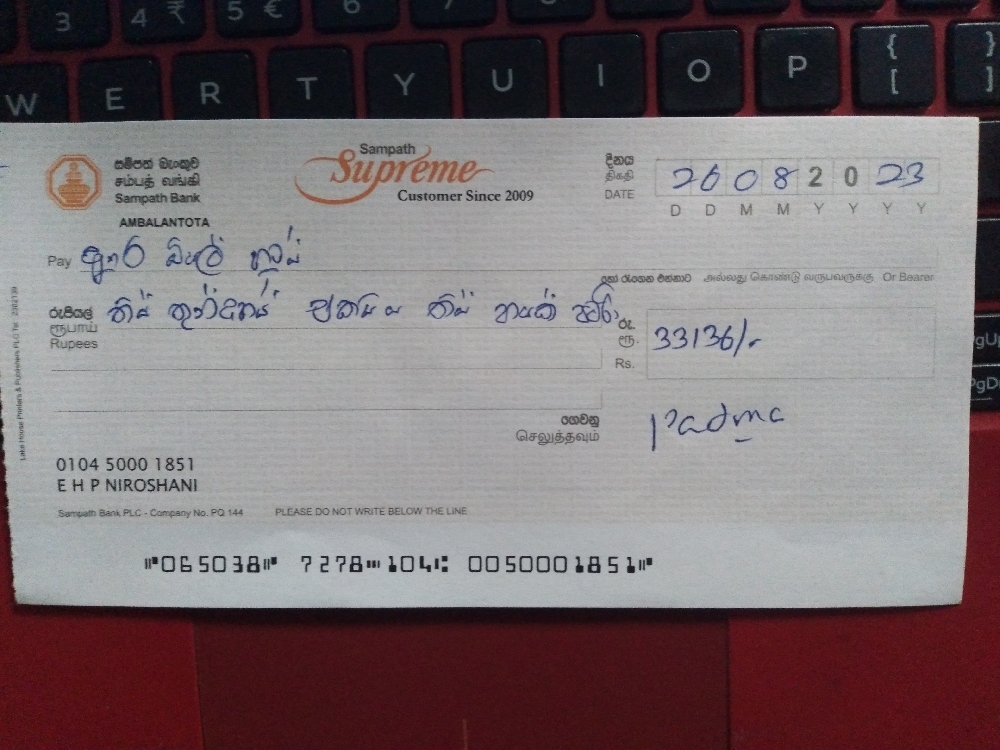 3 4 ₹ 5 € 6 7 8 9 0
W E R T Y U I O P { [ } ]
සම්පත් බැංකුව
சம்பத் வங்கி
Sampath Bank
AMBALANTOTA
Sampath
Supreme
Customer Since 2009
දිනය
திகதி
DATE
26 08 20 23
D D M M Y Y Y Y
Pay
හෝ රැගෙන එන්නාට அல்லது கொண்டு வருபவருக்கு Or Bearer
රුපියල් තිස් තුන්දහස් එකසිය තිස් හයක් පමණි
ரூபாய்
Rupees
රු.
ரூ.
Rs.
33136/-
ගෙවනු
செலுத்தவும்
Padma
0104 5000 1851
E H P NIROSHANI
Sampath Bank PLC - Company No. PQ 144 PLEASE DO NOT WRITE BELOW THE LINE
⑈065038⑈ 7278⑉104⑆ 0050001851⑈
Lake House Printers & Publishers PLC
gUp
PgDn